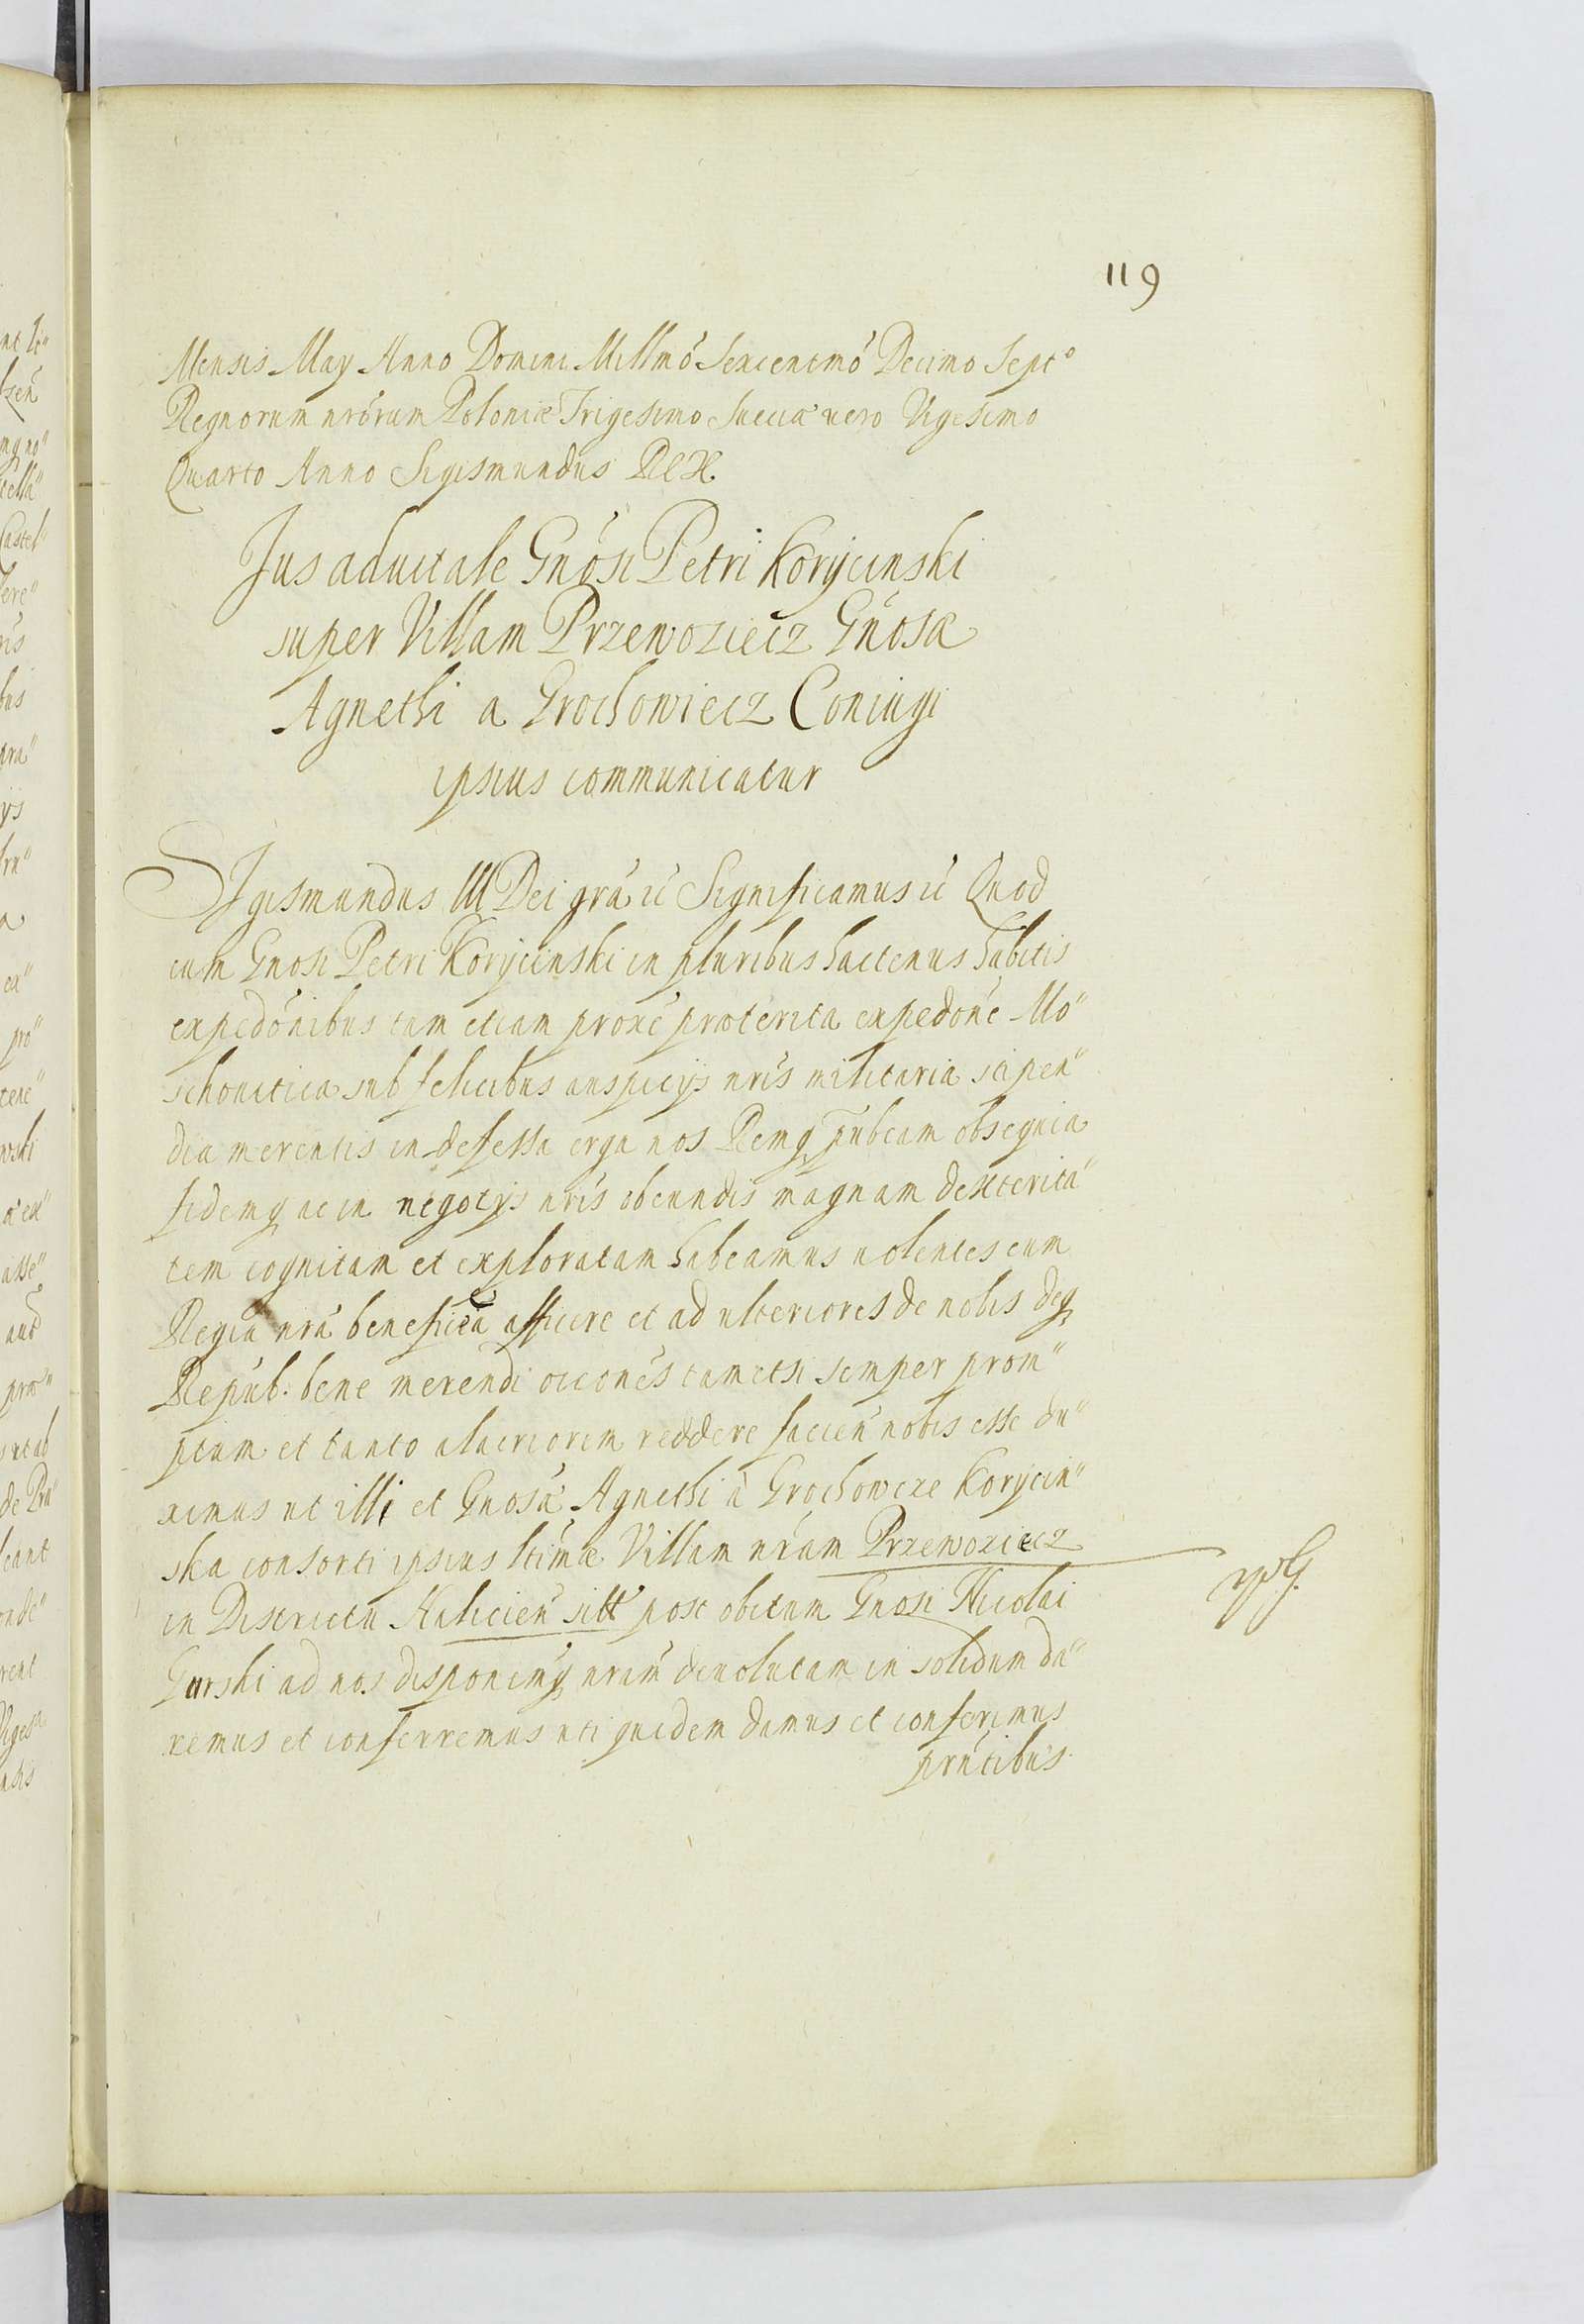 119
Mensis May Anno Domini Millmo Sexcentmo Decimo Septo
Regnorum nrorum Poloniæ Trigesimo Sueciæ uero Vigesimo
Quarto Anno Sigismundus REX.
Jus aduitale Gnosi Petri Korycinski
super Villam Przewoziecz Gnosæ
Agnethi a Grochowiecz Coniugi
ipsius communicatur
Sigismundus III Dei gra ꝛc Significamus ꝛc Quod
cum Gnosi Petri Korycinski in pluribus hactenus habitis
expedonibus tum etiam proxe præterita expedone Mo"
schouitica sub felicibus auspicijs nris militaria stipen"
dia merentis indefessa erga nos Remq pubcam obsequia
fidemq ac in negotys nris obeundis magnam dexterita"
tem cognitam et exploratam habeamus uolentes eum
Regia nra beneficia afficere et ad ulteriores de nobis deq
Repub. bene merendi occones tametsi semper prom"
ptum et tanto alacriorem reddere facien nobis esse du"
ximus ut illi et Gnosa Agnethi a Grochowcze Korycin"
ska consorti ipsius ltimæ Villam nram Przewoziecz
in Districtu Halicien sitt post obitum Gnosi Nicolai
Gurski ad nos disponemq nram deuolutam in solidum da"
remus et conferremus uti quidem damus et conferimus
prntibus